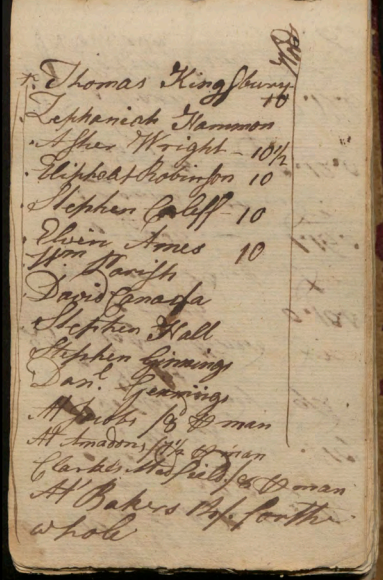 Thomas Kingsbury
10
Zephaniah Hammon
Asher Wright - 10½
Eliphelet Robinson 10
Stephen Coleff - 10
Elven Ames 10
Wm Parish
David Canada
Stephen Hall
Stephen Ginnings
Danl. Gennings
At Jacobs /8 man
At Amadons / man
Clarkes /8 man
At Bakers for the
whole